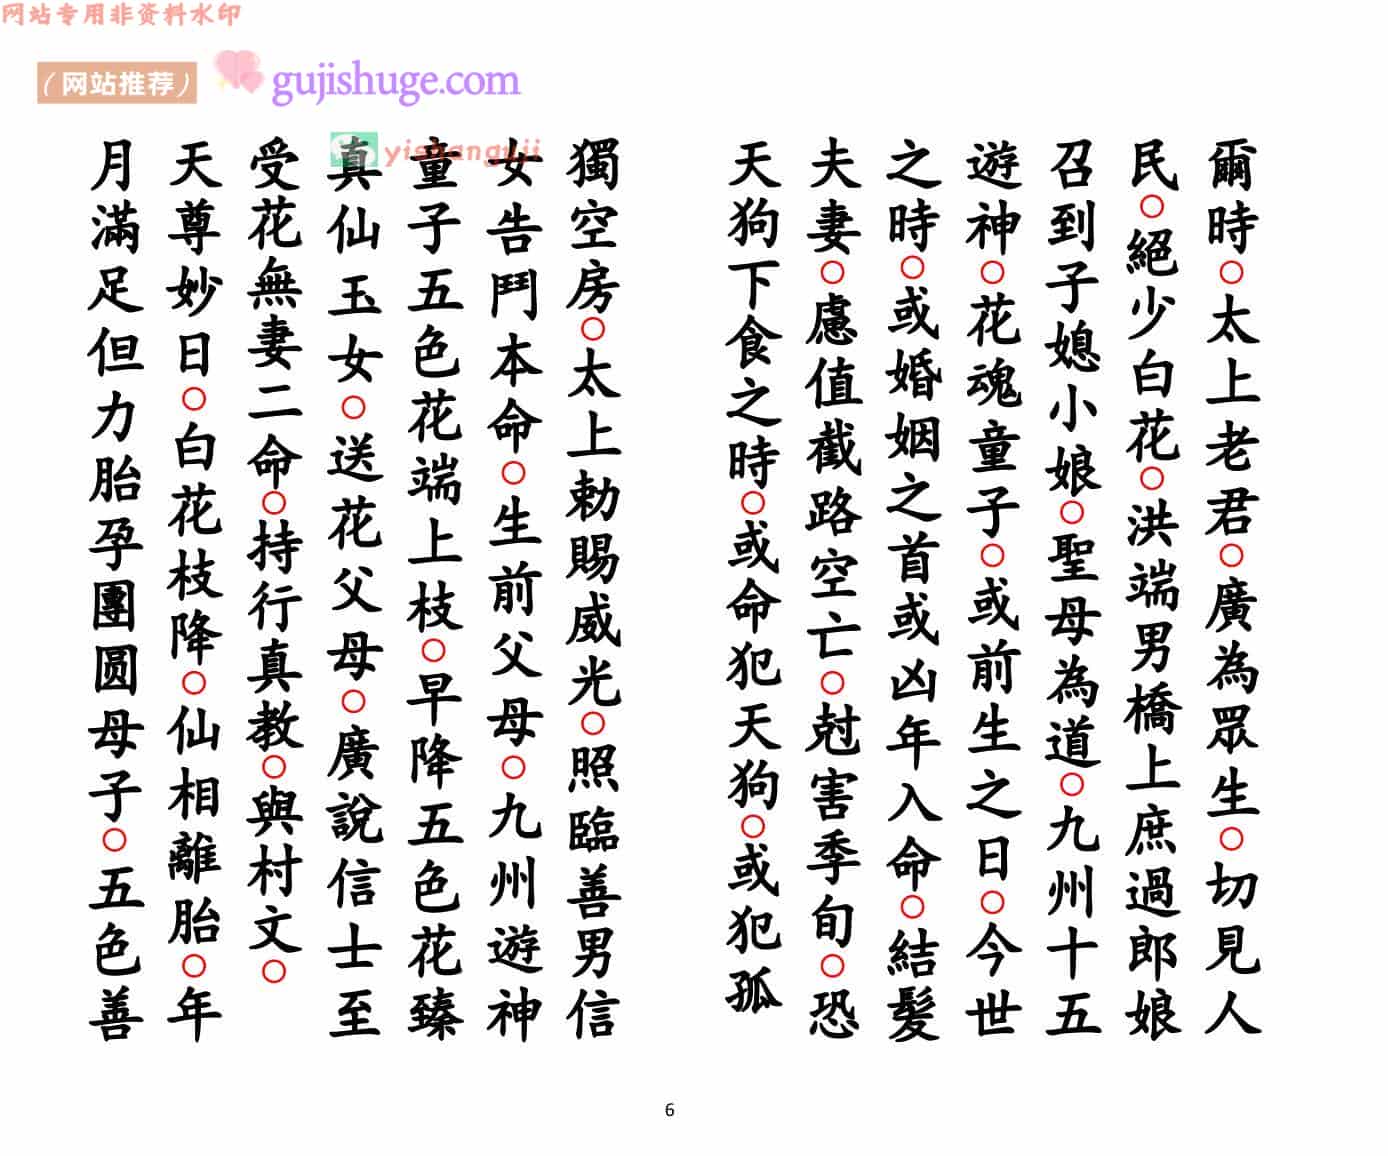 网站专用非资料水印
（网站推荐）
gujishuge.com
yishanguji
爾時○太上老君○廣為眾生○切見人
民○絕少白花○洪端男橋上庶過郎娘
召到子媳小娘○聖母為道○九州十五
遊神○花魂童子○或前生之日○今世
之時○或婚姻之首或凶年入命○結髮
夫妻○慮值截路空亡○尅害季旬○恐
天狗下食之時○或命犯天狗○或犯孤
獨空房○太上勅賜威光○照臨善男信
女告鬥本命○生前父母○九州遊神
童子五色花端上枝○早降五色花臻
真仙玉女○送花父母○廣說信士至
受花無妻二命○持行真教○與村文○
天尊妙日○白花枝降○仙相離胎○年
月滿足但力胎孕團圆母子○五色善
6